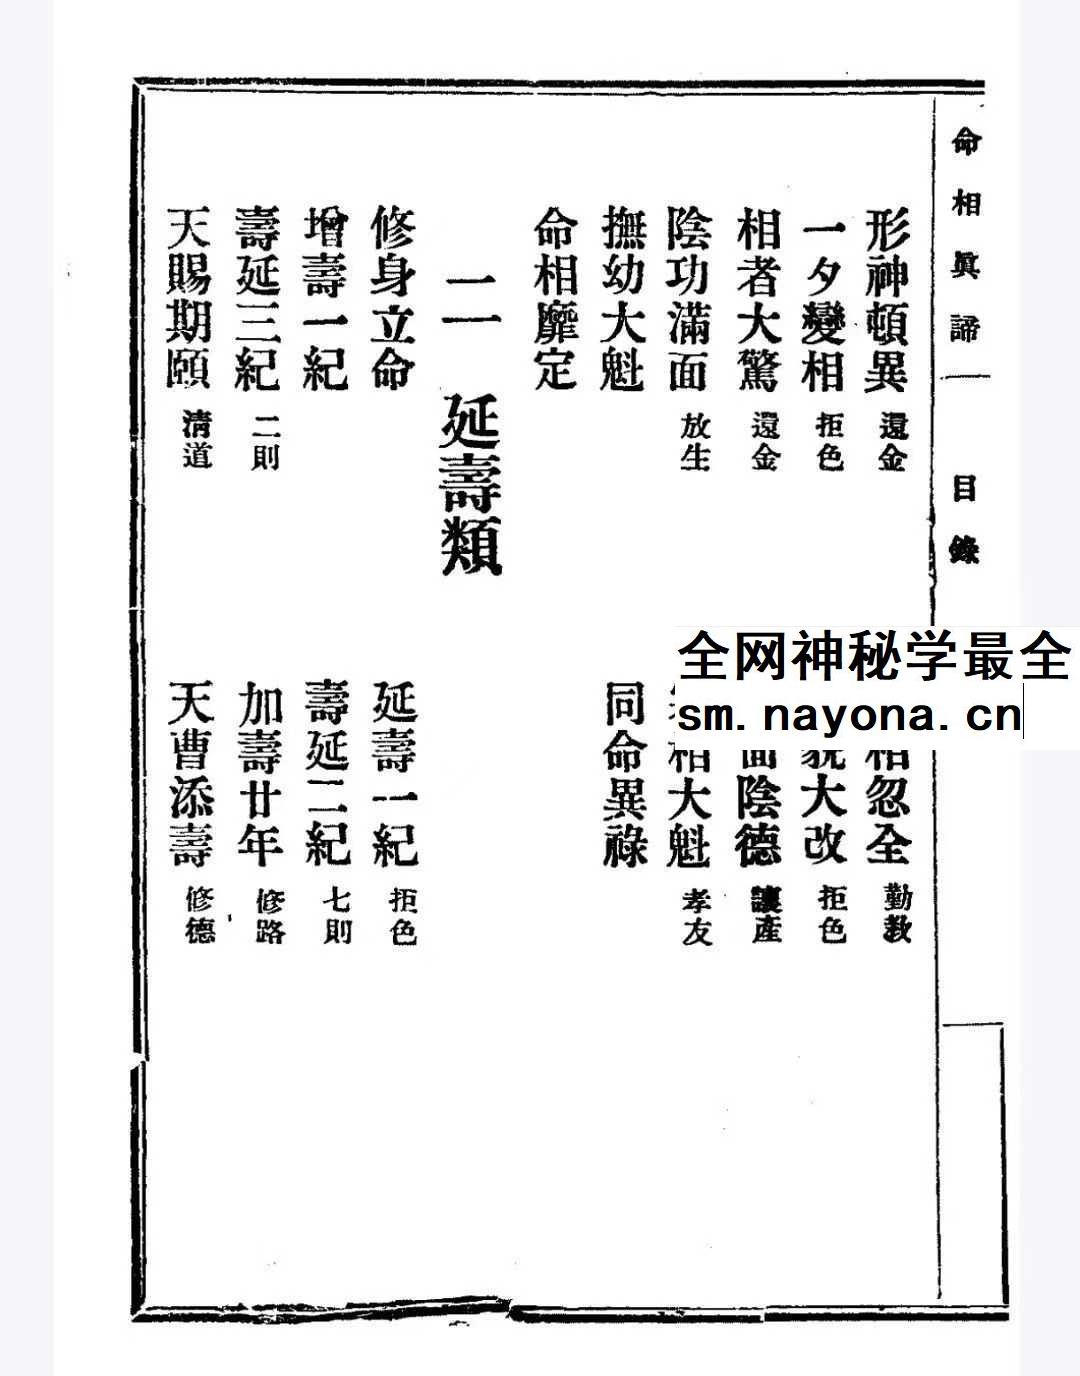 命相眞諦 目錄
形神頓異 還金
相忽全 勸救
一夕變相 拒色
貌大改 拒色
相者大驚 還金
面陰德 讓產
陰功滿面 放生
相大魁 孝友
撫幼大魁
同命異祿
命相靡定
二 延壽類
修身立命
延壽一紀 拒色
增壽一紀
壽延二紀 七則
壽延三紀 二則
加壽廿年 修路
天賜期頤 清道
天曹添壽 修德
全网神秘学最全
sm.nayona.cn